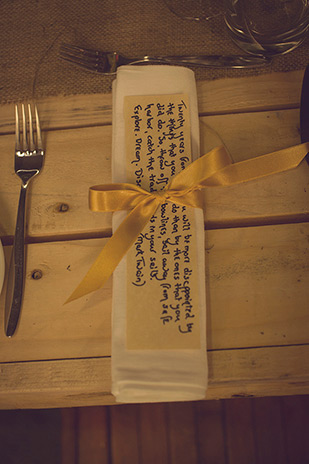 Twenty years from u will be more disappointed by
the things that you do than by the ones that you
did do. So, throw off bowlines, Sail away from safe
harbor, catch the trad s in your sails.
Explore. Dream. Dis (Mark Twain)